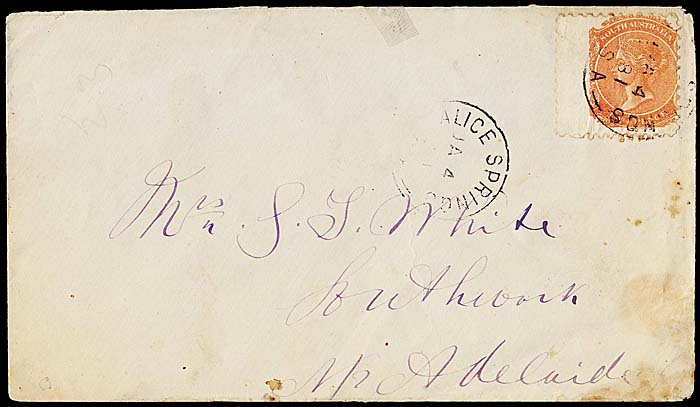 SOUTH AUSTRALIA
4
81
S A
ALICE SPRINGS
JA 4
Mrs S. S. White
Southwark
Nr Adelaide